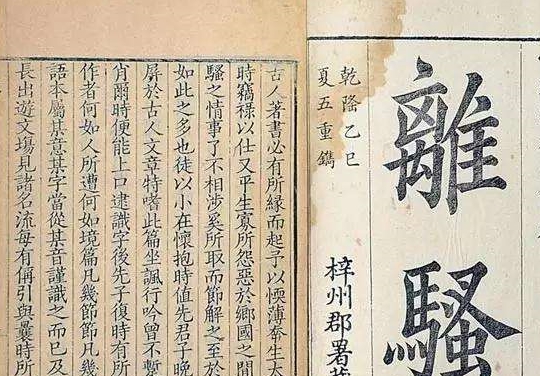 離騷
乾隆乙巳
夏五重鐫
梓州郡署
古人著書必有所緣而起予以愞薄奉生太
時竊祿以仕又平生寡所怨惡於鄉國之間
騷之情事了不相涉奚所取而節解之至於
如此之多也徒以小在懷抱時值先君子晚
屏於古人文章特嗜此篇坐諷行吟曾不暫
肖爾時便能上口逮識字後先子復時有所
作者何如人所遭何如境篇凡幾節節凡幾
語本屬某意某字當從某音謹識之而已及
長出遊文塲見諸名流每有偁引與曩時所